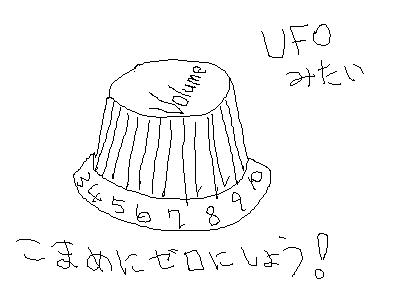 UFO
みたい
Volume
3 4 5 6 7 8 9 10
こまめにゼロにしよう!